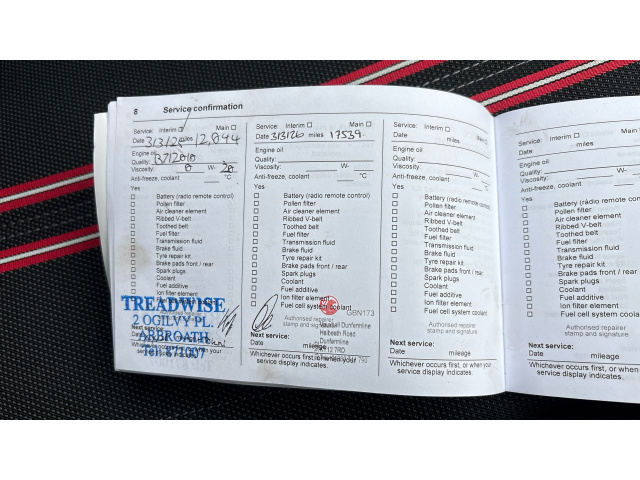 8 Service confirmation
Service: Interim Main
Date 3/3/25 miles 12,894
Engine oil
Quality:
Viscosity: 0 W- 20
Anti-freeze, coolant °C
Yes
Battery (radio remote control)
Pollen filter
Air cleaner element
Ribbed V-belt
Toothed belt
Fuel filter
Transmission fluid
Brake fluid
Tyre repair kit
Brake pads front / rear
Spark plugs
Coolant
Fuel additive
Ion filter element
TREADWISE
2 OGILVY PL.
ARBROATH
Tel: 871007
Next service:
Date
Whichever occurs first, or when your
service display indicates.
Service: Interim Main
Date 3/3/26 miles 17539.
Engine oil
Quality:
Viscosity: W-
Anti-freeze, coolant °C
Yes
Battery (radio remote control)
Pollen filter
Air cleaner element
Ribbed V-belt
Toothed belt
Fuel filter
Transmission fluid
Brake fluid
Tyre repair kit
Brake pads front / rear
Spark plugs
Coolant
Fuel additive
Ion filter element
Fuel cell system coolant
GBN173
Authorised repairer
stamp and signature
Vauxhall Dunfermline
Halbeath Road
Dunfermline
Next service:
Date
Whichever occurs first, or when your
service display indicates.
Service: Interim Main
Date miles
Engine oil
Quality:
Viscosity: W-
Anti-freeze, coolant °C
Yes
Battery (radio remote control)
Pollen filter
Air cleaner element
Ribbed V-belt
Toothed belt
Fuel filter
Transmission fluid
Brake fluid
Tyre repair kit
Brake pads front / rear
Spark plugs
Coolant
Fuel additive
Ion filter element
Fuel cell system coolant
Authorised repairer
stamp and signature
Next service:
Date mileage
Whichever occurs first, or when your
service display indicates.
Service: Interim
Date miles
Engine oil
Quality:
Viscosity: W-
Anti-freeze, coolant
Yes
Battery (radio remote
Pollen filter
Air cleaner element
Ribbed V-belt
Toothed belt
Fuel filter
Transmission fluid
Brake fluid
Tyre repair kit
Brake pads front / rear
Spark plugs
Coolant
Fuel additive
Ion filter element
Fuel cell system coola
Authorised repairer
stamp and signature
Next service:
Date mileage
Whichever occurs first, or w
service display indicates.